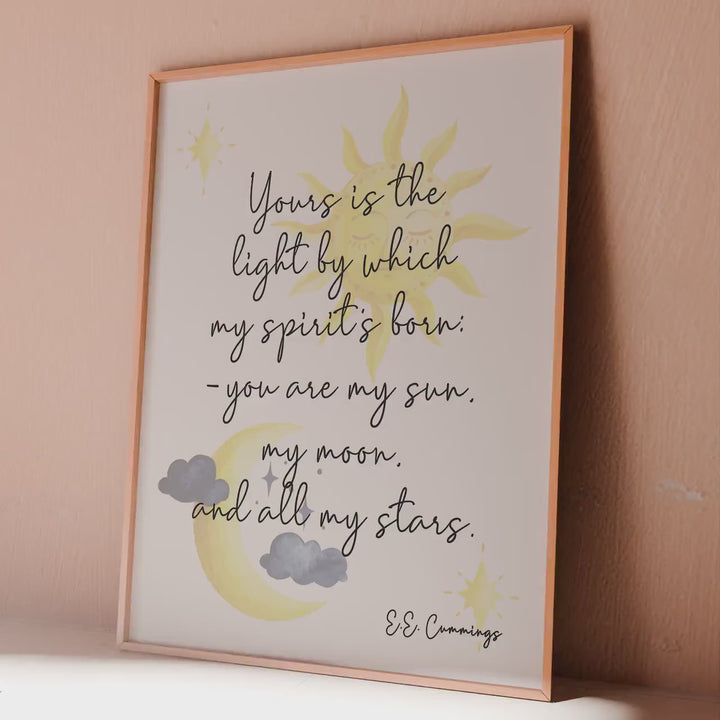 Yours is the
light by which
my spirit's born:
-you are my sun,
my moon,
and all my stars.
E.E. Cummings